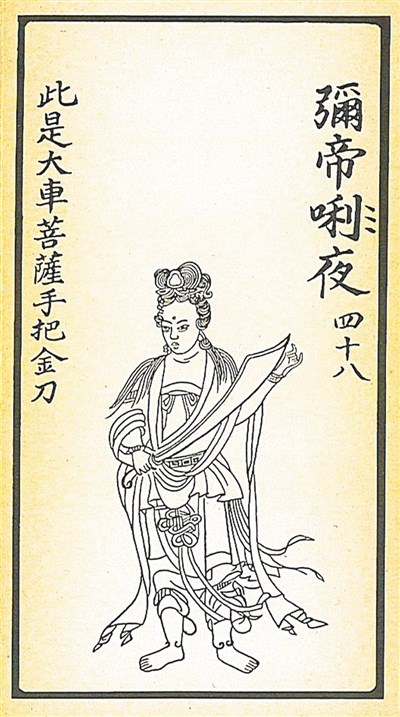 彌帝唎夜 四十八
此是大車菩薩手把金刀